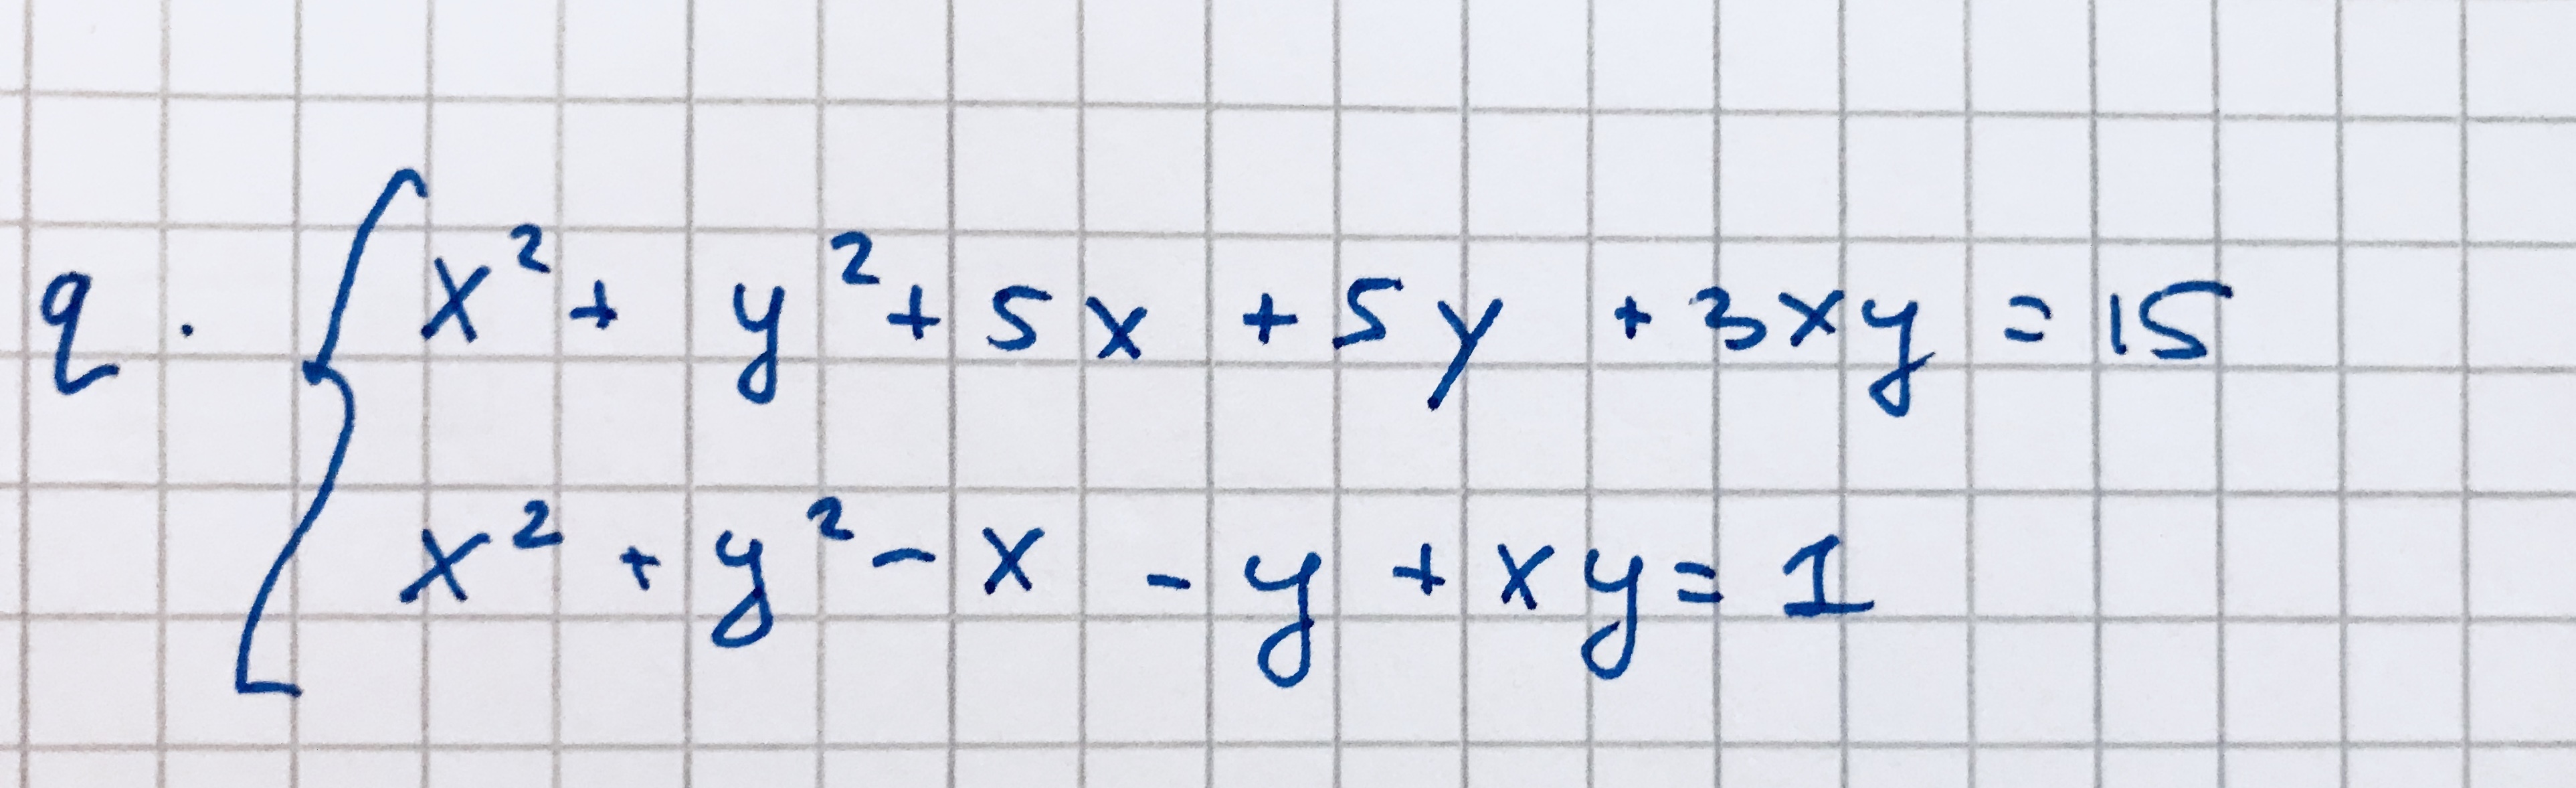 9. { x² + y² + 5x + 5y + 3xy = 15
x² + y² - x - y + xy = 1